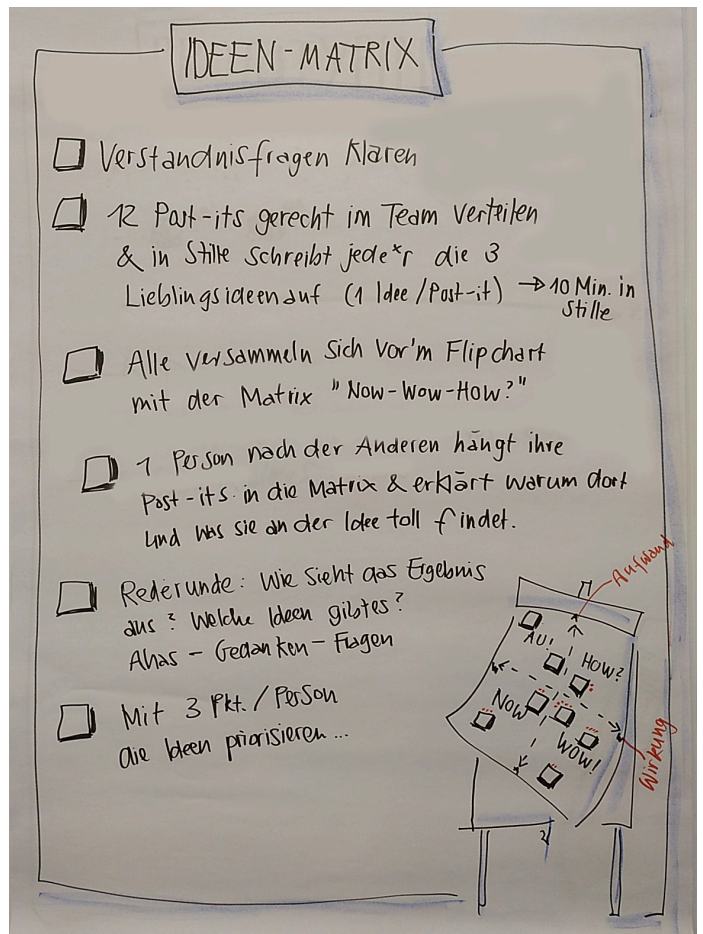 IDEEN-MATRIX
Verständnisfragen klären
12 Post-its gerecht im Team verteilen
& in Stille schreibt jede*r die 3
Lieblingsideen auf (1 Idee/Post-it) → 10 Min. in
Stille
Alle versammeln sich vor'm Flipchart
mit der Matrix "Now-Wow-How?"
1 Person nach der Anderen hängt ihre
Post-its in die Matrix & erklärt warum dort
und was sie an der Idee toll findet.
Rederunde: Wie sieht das Ergebnis
aus? Welche Ideen gibt es?
Ahas - Gedanken - Fragen
Mit 3 Pkt./Person
die Ideen priorisieren...
Aufwand
AU!
HOW?
NOW
WOW!
Wirkung